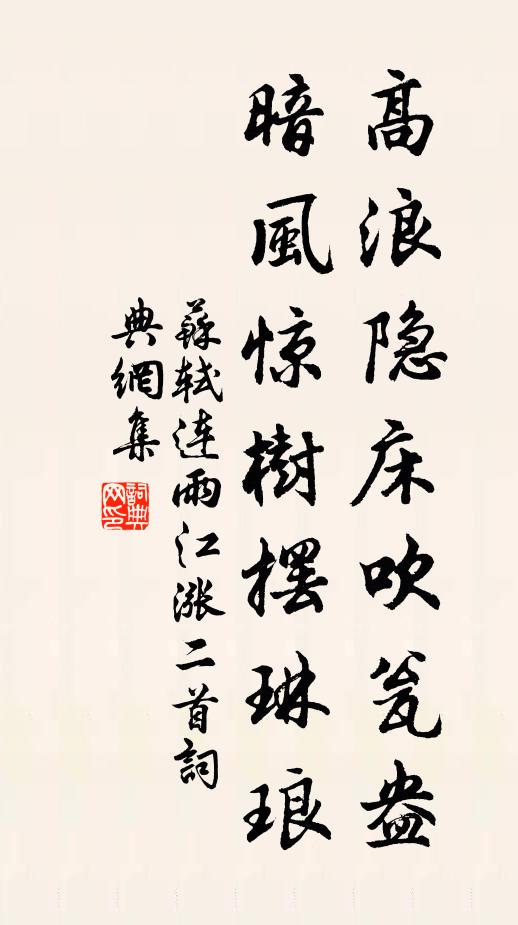 高浪隐床吹瓮盎
暗風惊樹擺琳琅
蘇軾連雨江涨二首詞
典網集
詞典网印